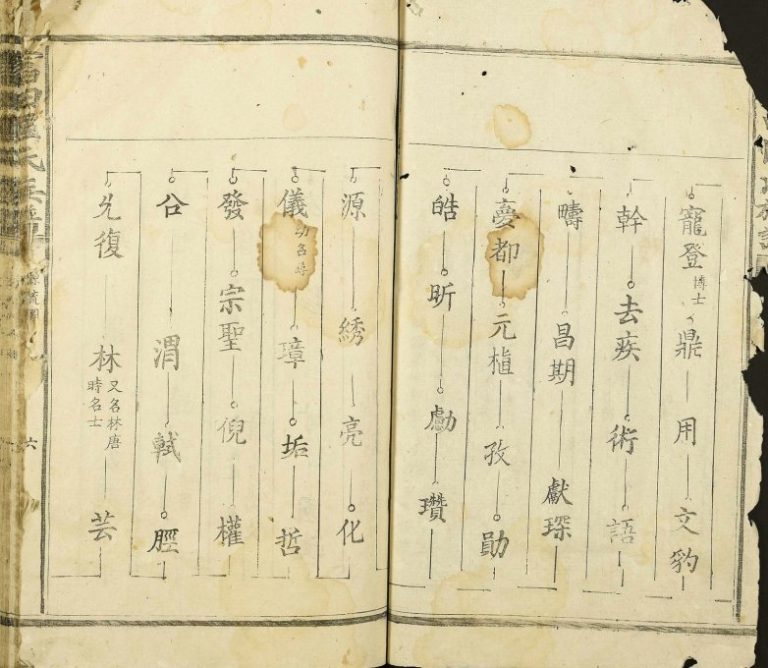 寵登 博士 鼎 用 文豹
幹 去疾 術 語
疇 昌期 獻琛
憂都 元植 孜 勛
皓 昕 勵 瓚
源 綉 亮 化
儀 幼名 璋 垢 哲
發 宗聖 倪 權
㕣 渭 軾 脛
允復 林 又名林唐時名士 芸
六